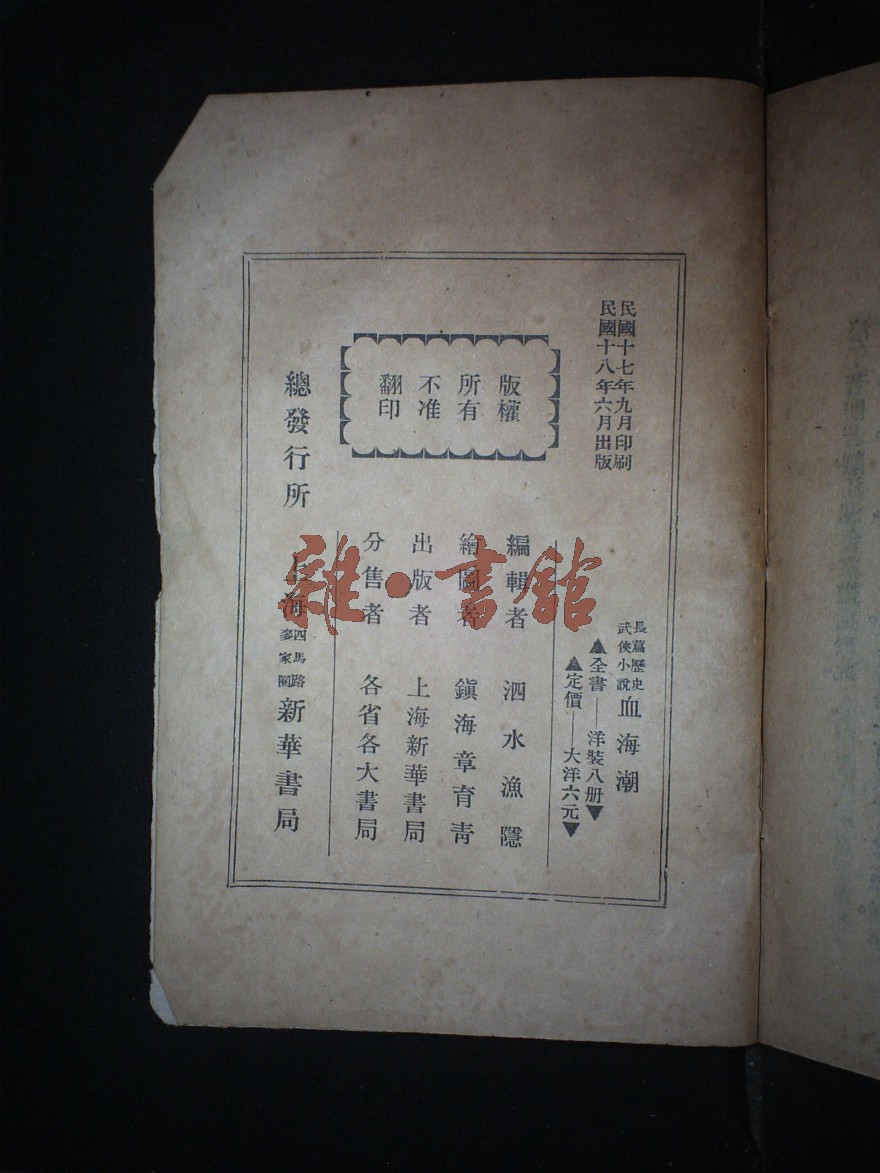 民國十七年九月印刷
民國十八年六月出版
長篇歷史
武俠小說
血海潮
▲全書——洋裝八册▼
▲定價——大洋六元▼
版權
所有
不准
翻印
編輯者 泗水漁隱
繪圖者 鎭海章育靑
出版者 上海新華書局
分售者 各省各大書局
總發行所 上海
四馬路
麥家圈
新華書局
雜·書館